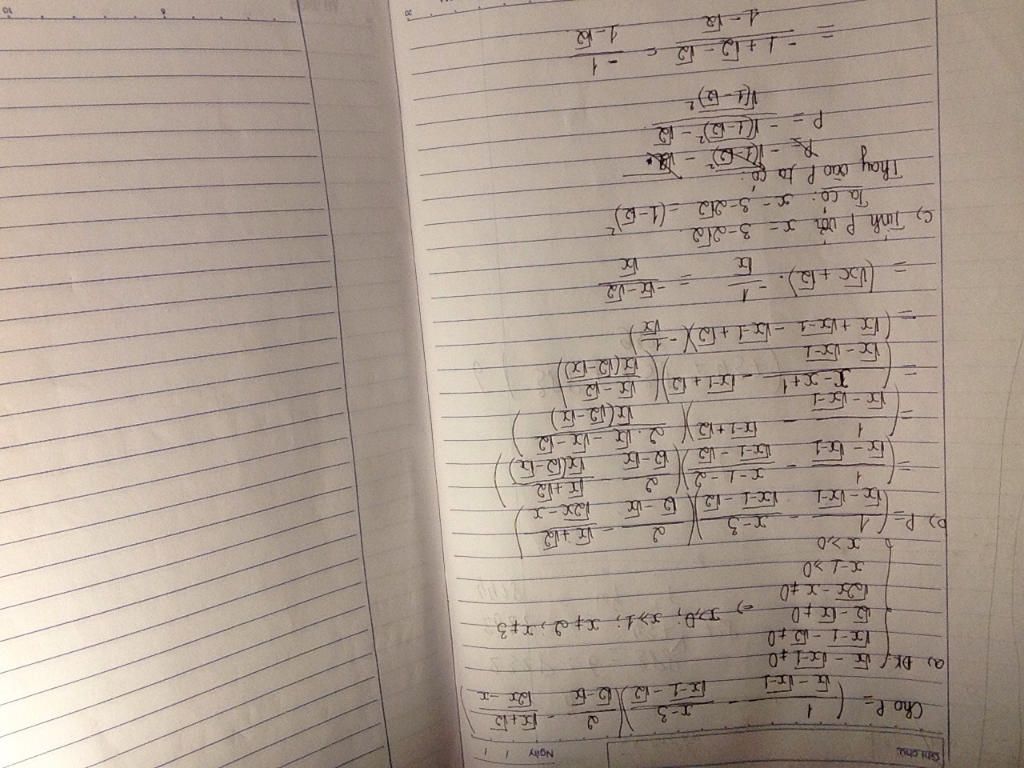 Ghi chú
Ngày / /
Cho P = (1/(√x - √x-1) - (x-3)/(√x-1 - √2))(2/(√2 - √x) - (√x+√2)/(√2x - x))
a) ĐK { √x - √x-1 ≠ 0
√x-1 - √2 ≠ 0
√2 - √x ≠ 0 => x>0; x>1, x≠2; x≠3
√2x - x ≠ 0
x-1 >0
x>0
b) P= (1/(√x-√x-1) - (x-3)/(√x-1-√2))(2/(√2-√x) - (√x+√2)/(√2x - x))
= (1/(√x-√x-1) - (x-1-2)/(√x-1-√2))(2/(√2-√x) - (√x+√2)/(√x(√2-√x)))
= (1/(√x-√x-1) - √x-1+√2)((2.√x-√x-√2)/(√x(√2-√x)))
= ((x-x+1)/(√x-√x-1) - √x-1+√2)((√x-√2)/(√x(√2-√x)))
= (√x+√x-1 - √x-1+√2)(-1/√x)
= (√x+√2).-1/√x = (-√x-√2)/√x
c) Tính P với x = 3-2√2
Ta có: x = 3-2√2 = (1-√2)²
Thay vào P ta có:
P = (-√(1-√2)² - √2)/√(1-√2)²
= (-1+√2-√2)/(1-√2) = -1/(1-√2)